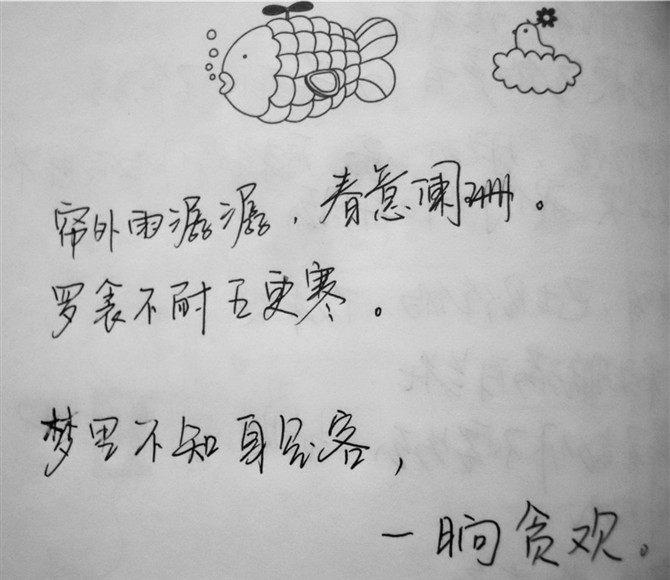 帘外雨潺潺，春意阑珊。
罗衾不耐五更寒。
梦里不知身是客，
一晌贪欢。